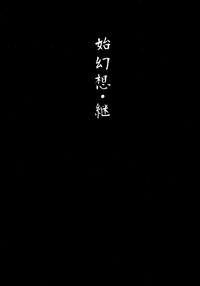 始幻想・継